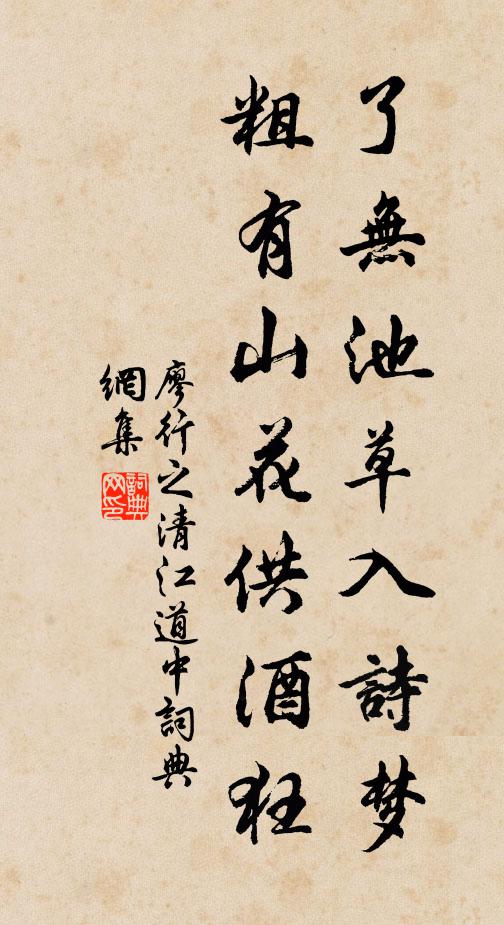 了無池草入詩梦
粗有山花供酒狂
廖行之清江道中詞典
網集
詞典
网印